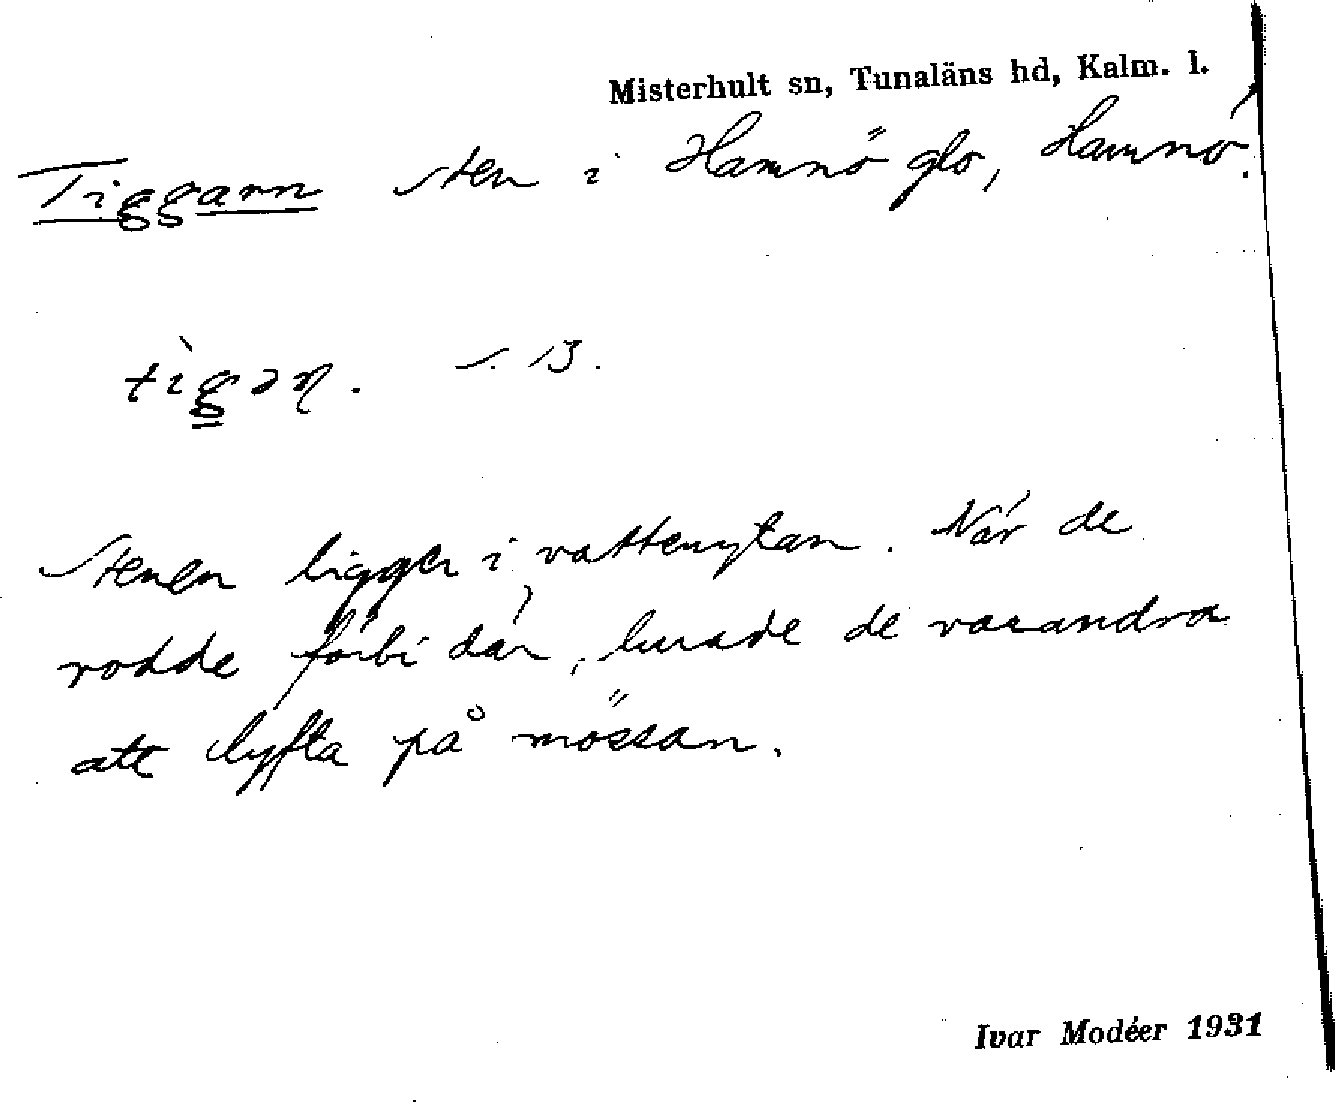 Misterhult sn, Tunaläns hd, Kalm. l.
Tiggarn sten i Hamnö glo, Hamnö.
s. 13.
Stenen ligger i vattenytan. När de
rodde förbi där, lurade de varandra
att lyfta på mössan.
Ivar Modéer 1931